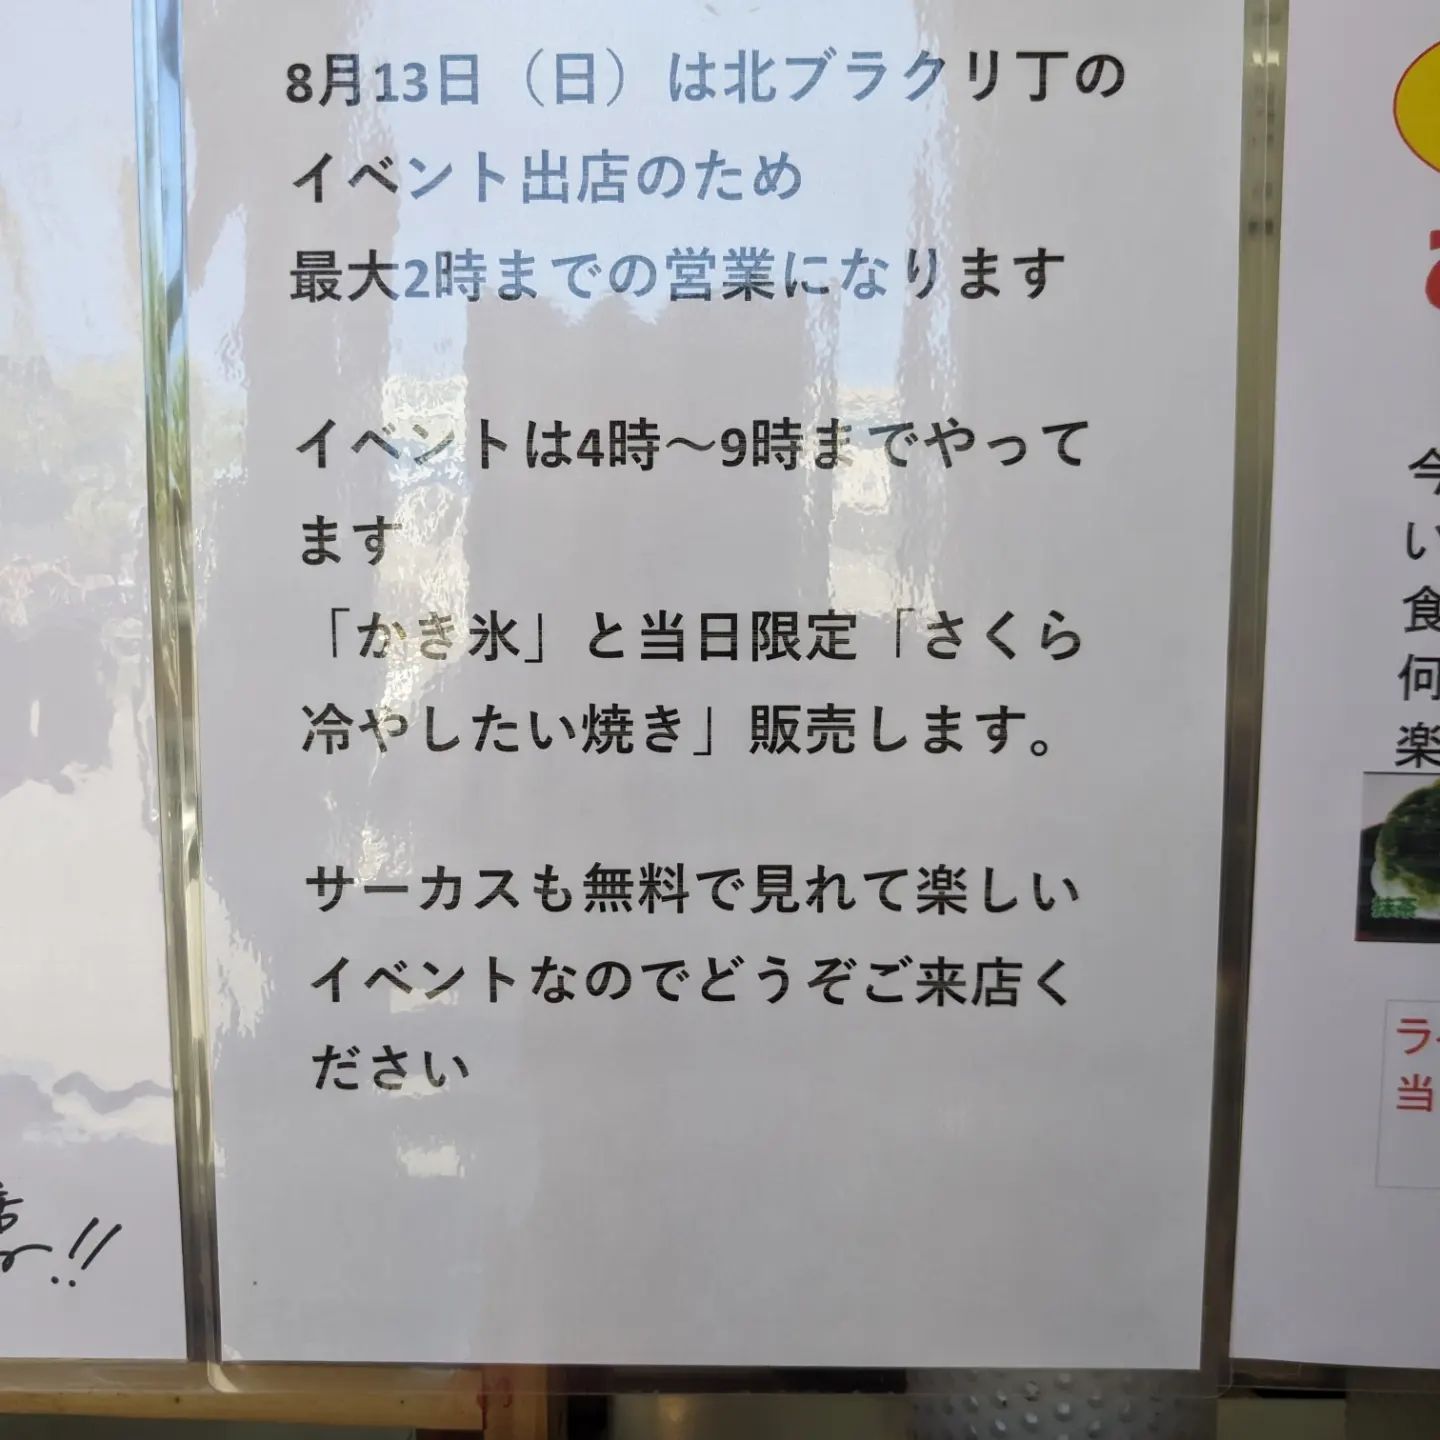 8月13日（日）は北ブラクリ丁の
イベント出店のため
最大2時までの営業になります
イベントは4時～9時までやって
ます
「かき氷」と当日限定「さくら
冷やしたい焼き」販売します。
サーカスも無料で見れて楽しい
イベントなのでどうぞご来店く
ださい
!!
今
い
食
何
楽
抹茶
ラ
当